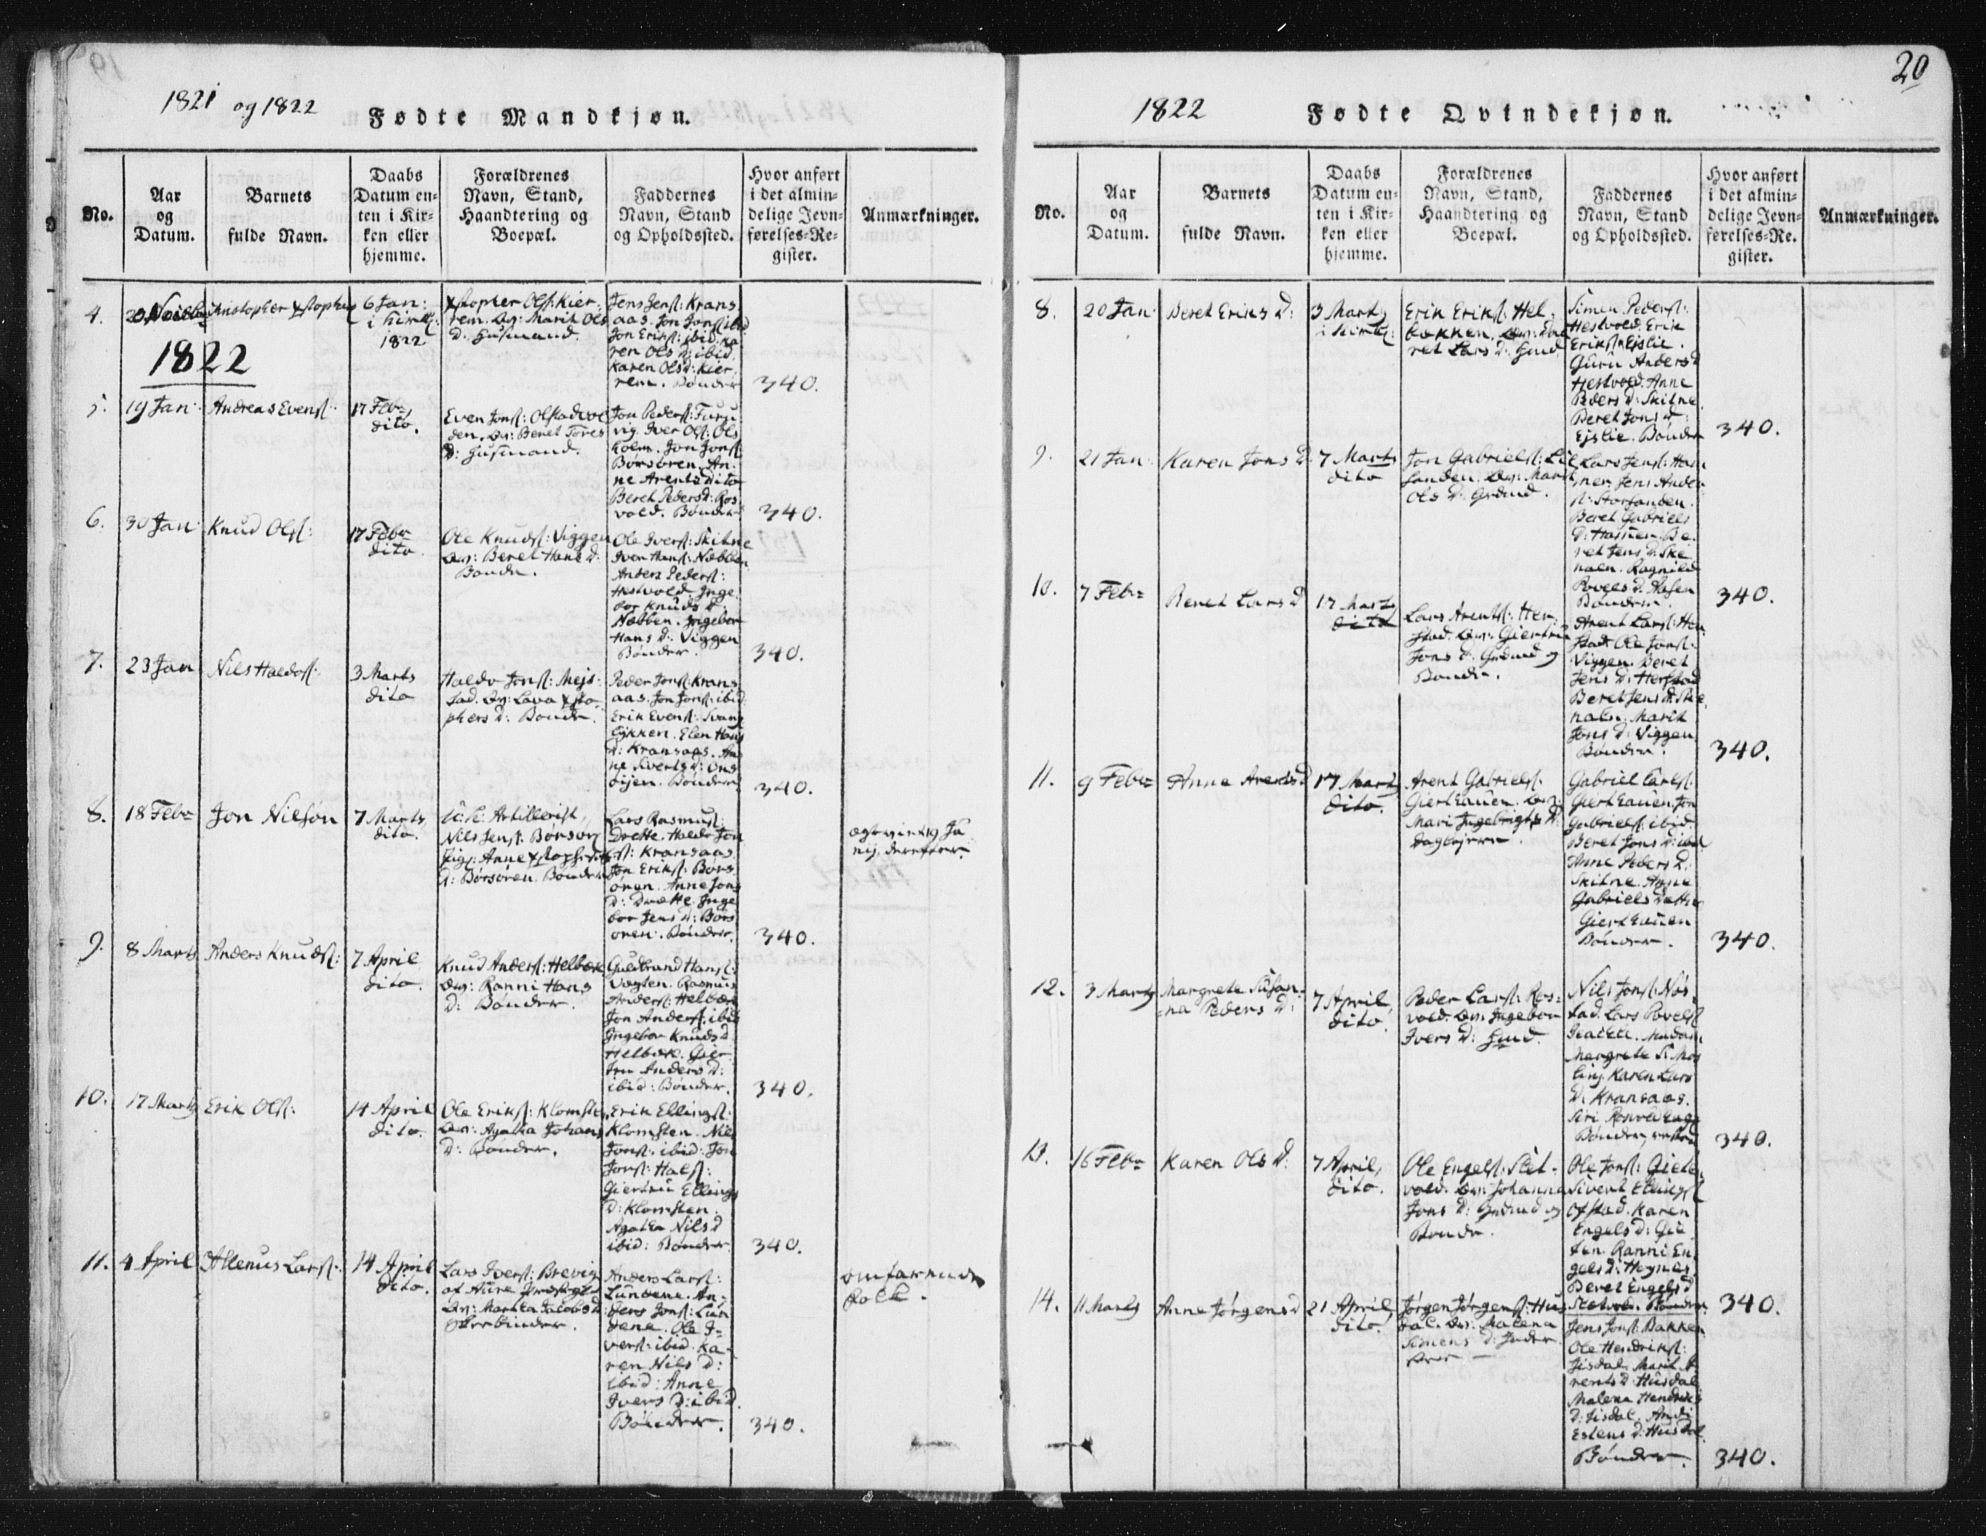 1821 og 1822
Fødte Mandkjøn.
No.
Aar
og
Datum.
Barnets
fulde Navn.
Daabs
Datum en-
ten i Kir-
ken eller
hjemme.
Forældrenes
Navn, Stand,
Haandtering og
Boepæl.
Faddernes
Navn, Stand
og Opholdssted.
Hvor anført
i det almin-
delige Jevn-
førelses-Re-
gister.
Anmærkninger.
4.
6 Jan:
i Kirk:
1822
Jens Jens: Krans
aas. Jon Jons: ibid
Jon Eriks: ibid. Ka
ren Ols D: ibid.
Karen Ols D: Kier
rem. Bønder
340.
1822
5.
19 Jan:
Andreas Evens:
17 Feb
dito.
Even Jons: Olstadvol
den. Beret Tores
D: Husmand.
Jon Peders: Furu
vig. Iver Ols: Ols
holm. Jon Jons:
Børsøren. An
ne Arents D ito
Beret Peders D: Ros
vold. Bønder
340.
6.
30 Jan:
Knud Ols:
17 Feb
dito.
Ole Knuds: Viggen
Beret Hans D:
Bonde.
Ole Ivers: Skitne
Iver Hans: Nebben
Anders Peders:
Hestvold. Inge
bor Knuds D
Nebben. Ingebor
Hans D: Viggen
Bønder.
340.
7.
23 Jan
Nils Haldos:
3 Marts
dito
Haldo Jons: Mejs
tad. Lava Xsto
phers D: Bonde.
Peder Jons: Krans
aas. Jon Jons: ibid:
Erik Evens: Svang
lykken. Elen Hans
D: Kransaas. An
ne Siverts D: Ons
øijen. Bønder
340.
8.
18 Feb
Jon Nilsøn
7 Marts
dito.
Artillerist,
Nils Jens: Børsør
Pige: Anne Xstophers
D: Børsøren. Bonde
Lars Rasmus:
Drette. Haldo Jon
s: Kransaas
Jon Eriks: Børs
øren. Anne Jons
D: Drette. Inge
bor Jens D: Børs
øren. Bønder.
340.
9.
8 Marts
Anders Knuds:
7 April
dito.
Knud Anders: Helbæk
Ranni Hans
D: Bønder.
Guldbrand Hans:
Vogten. Rasmus
Anders: Helbæk
Jon Anders: ibid
Ingebor Knuds D
Helbæk. Gier
tru Anders D:
ibid: Bønder.
340.
10.
17 Marts
Erik Ols:
14 April
dito.
Ole Eriks: Klomsten
Agatha Johans
D: Bønder.
Erik Ellings:
Klomsten. Nils
Jons: ibid: Jon
Jons: Hals:
Giertru Ellings
D: Klomsten.
Agatha Nils D
ibid: Bønder.
340.
11.
4 April
Altenus Lars:
14 April
dito.
Lars Ivers: Brevig
af Aure Præstegl
Martha Jacobs D:
Anders Lars:
Lundene. An-
ders Jons: Lun
dene. Ole I-
vers: ibid. Ka-
ren Nils D:
ibid: Anne
Ivers D: ibid.
Bønder.
340.
omfarende
Folk.
20
1822
Fødte Qvindekjøn.
No.
Aar
og
Datum.
Barnets
fulde Navn.
Daabs
Datum en-
ten i Kir-
ken eller
hjemme.
Forældrenes
Navn, Stand,
Haandtering og
Boepæl.
Faddernes
Navn, Stand
og Opholdssted.
Hvor anført
i det almin-
delige Jevn-
førelses-Re.
gister.
Anmærkninger.
8.
20 Jan
Beret Eriks D:
3 Marts
i Kirk:
Erik Eriks: Hel
bakken.
ret Lars D:
Simen Peders:
Hestvold. Erik
Eriks: Ejslie.
Guru Anders D
Hestvold. Anne
Peders D: Skitne
Beret Jons D:
Ejslie. Bønder
340.
9.
21 Jan:
Karen Jons D
7 Marts
dito
Jon Gabriels:
Marit
Ols D: Grdmd.
Lars Jens: Ham
mer. Jens Ander
s: Storsanden.
Beret Gabriels
D: Be
ret Jens D: Ske
naln. Ragnild
Povels D:
Bønder.
340.
10.
7 Feb
Beret Lars D
17 Marts
dito
Lars Arents: Her
stad. Giertru
Jons D: Grdmd og
Bonde.
Arent Lars: Her
stad. Ole Jons:
Viggen. Beret
Jens D: Herstad
Beret Jens D: Ske
naln. Marit
Jons D: Viggen
Bønder.
340.
11.
9 Feb
Anne Arents D
17 Marts
dito.
Arent Gabriels:
Mari Ingebrigts D:
Gabriel Carls:
Jon
Gabriels: ibid
Beret Jons D: ibid
Anne Peders D:
Skitne. Anne
Gabriels Datter
Bønder.
340.
12.
3 Marts
Margrete Susan-
na Peders D:
7 April,
dito.
Peder Lars: Ros-
vold. Ingebor
Ivers D:
Nils Jons:
tad. Lars Povels:
Madam
Margrete S: Mos
ling. Karen Lars
D: Kransaas.
Siri
Bønder
340.
13.
16 Feb
Karen Ols D:
7 April,
dito.
Ole Engels: Slet-
vold. Johanna
Jons D: Grdmd og
Bonde.
Ole Jons:
Sivert Ellings:
Ofstad. Karen
Engels D:
Ranni En
gels D:
Beret Engels D
Sletvold. Bønder
340.
14.
11 Marts
Anne Jørgens D
21 April,
dito.
Jørgen Jørgens: Hus
dal. Malena
Simens D:
Jens Jons: Bakken
Ole Hendriks:
Marit A
rents D: Husdal
Malena Hendriks
D:
Estens D: Husdal.
Bønder.
340.